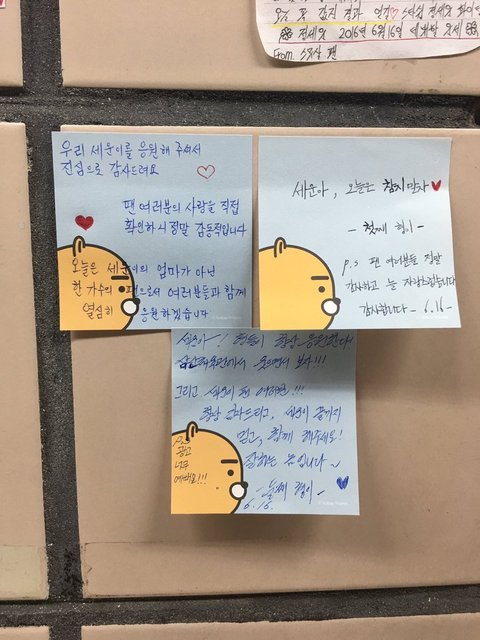 팬 전세잇 2016년 6월16일
From 스윗살 팬
우리 세운이를 응원해 주셔서
진심으로 감사드려요
팬 여러분의 사랑을 직접
확인하니 정말 감동적입니다
오늘은 세운이의 엄마가 아닌
한 가수의 팬으로서 여러분들과 함께
열심히 응원하겠습니다
세운아, 오늘은 참지말자
- 첫째 형이 -
p.s 팬 여러분들 정말
감사하고 늘 자랑스럽습니다
감사합니다 - 6.16 -
세운아~! 형들이 항상 응원한다!
웃으면서 보자!!!
그리고 세운이 팬 여러분!!!
정말 감사드리고, 세운이 끝까지
믿고, 함께 해주세요!
잘하는 놈입니다~
- 둘째 형이 -
6. 16.
P.S
광고
너무
예뻐요!!!